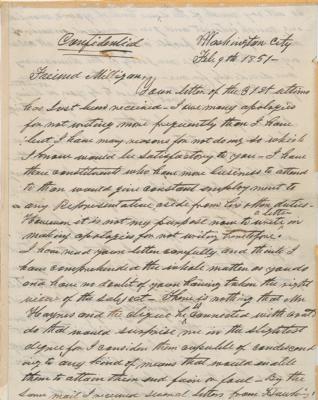 Confidential
Washington City
Feb. 9th 1851-
Friend Milligan,
Your letter of the 31st ultimo
has Just been received - I owe many apologies
for not writing more frequently than I have
but I have many reasons for not doing so which
I know would be satisfactory to you - I have
three constituents who have more business to attend
to than would give constant employment to
any Representative aside from his other duties -
However it is not my purpose now to write a letter in
making apologies for not writing heretofore.
I have read your letter carefully and think I
have comprehended the whole matter as you do
and have no doubt of your having taken the right
view of the subject - There is nothing that Mr
Haynes and the clique he is connected with could
do that would surprise me in the slightest
degree for I consider them capable of condescend
ing to any kind of means that would enable
them to attain their end fair or foul - By the
same mail I received several letters from